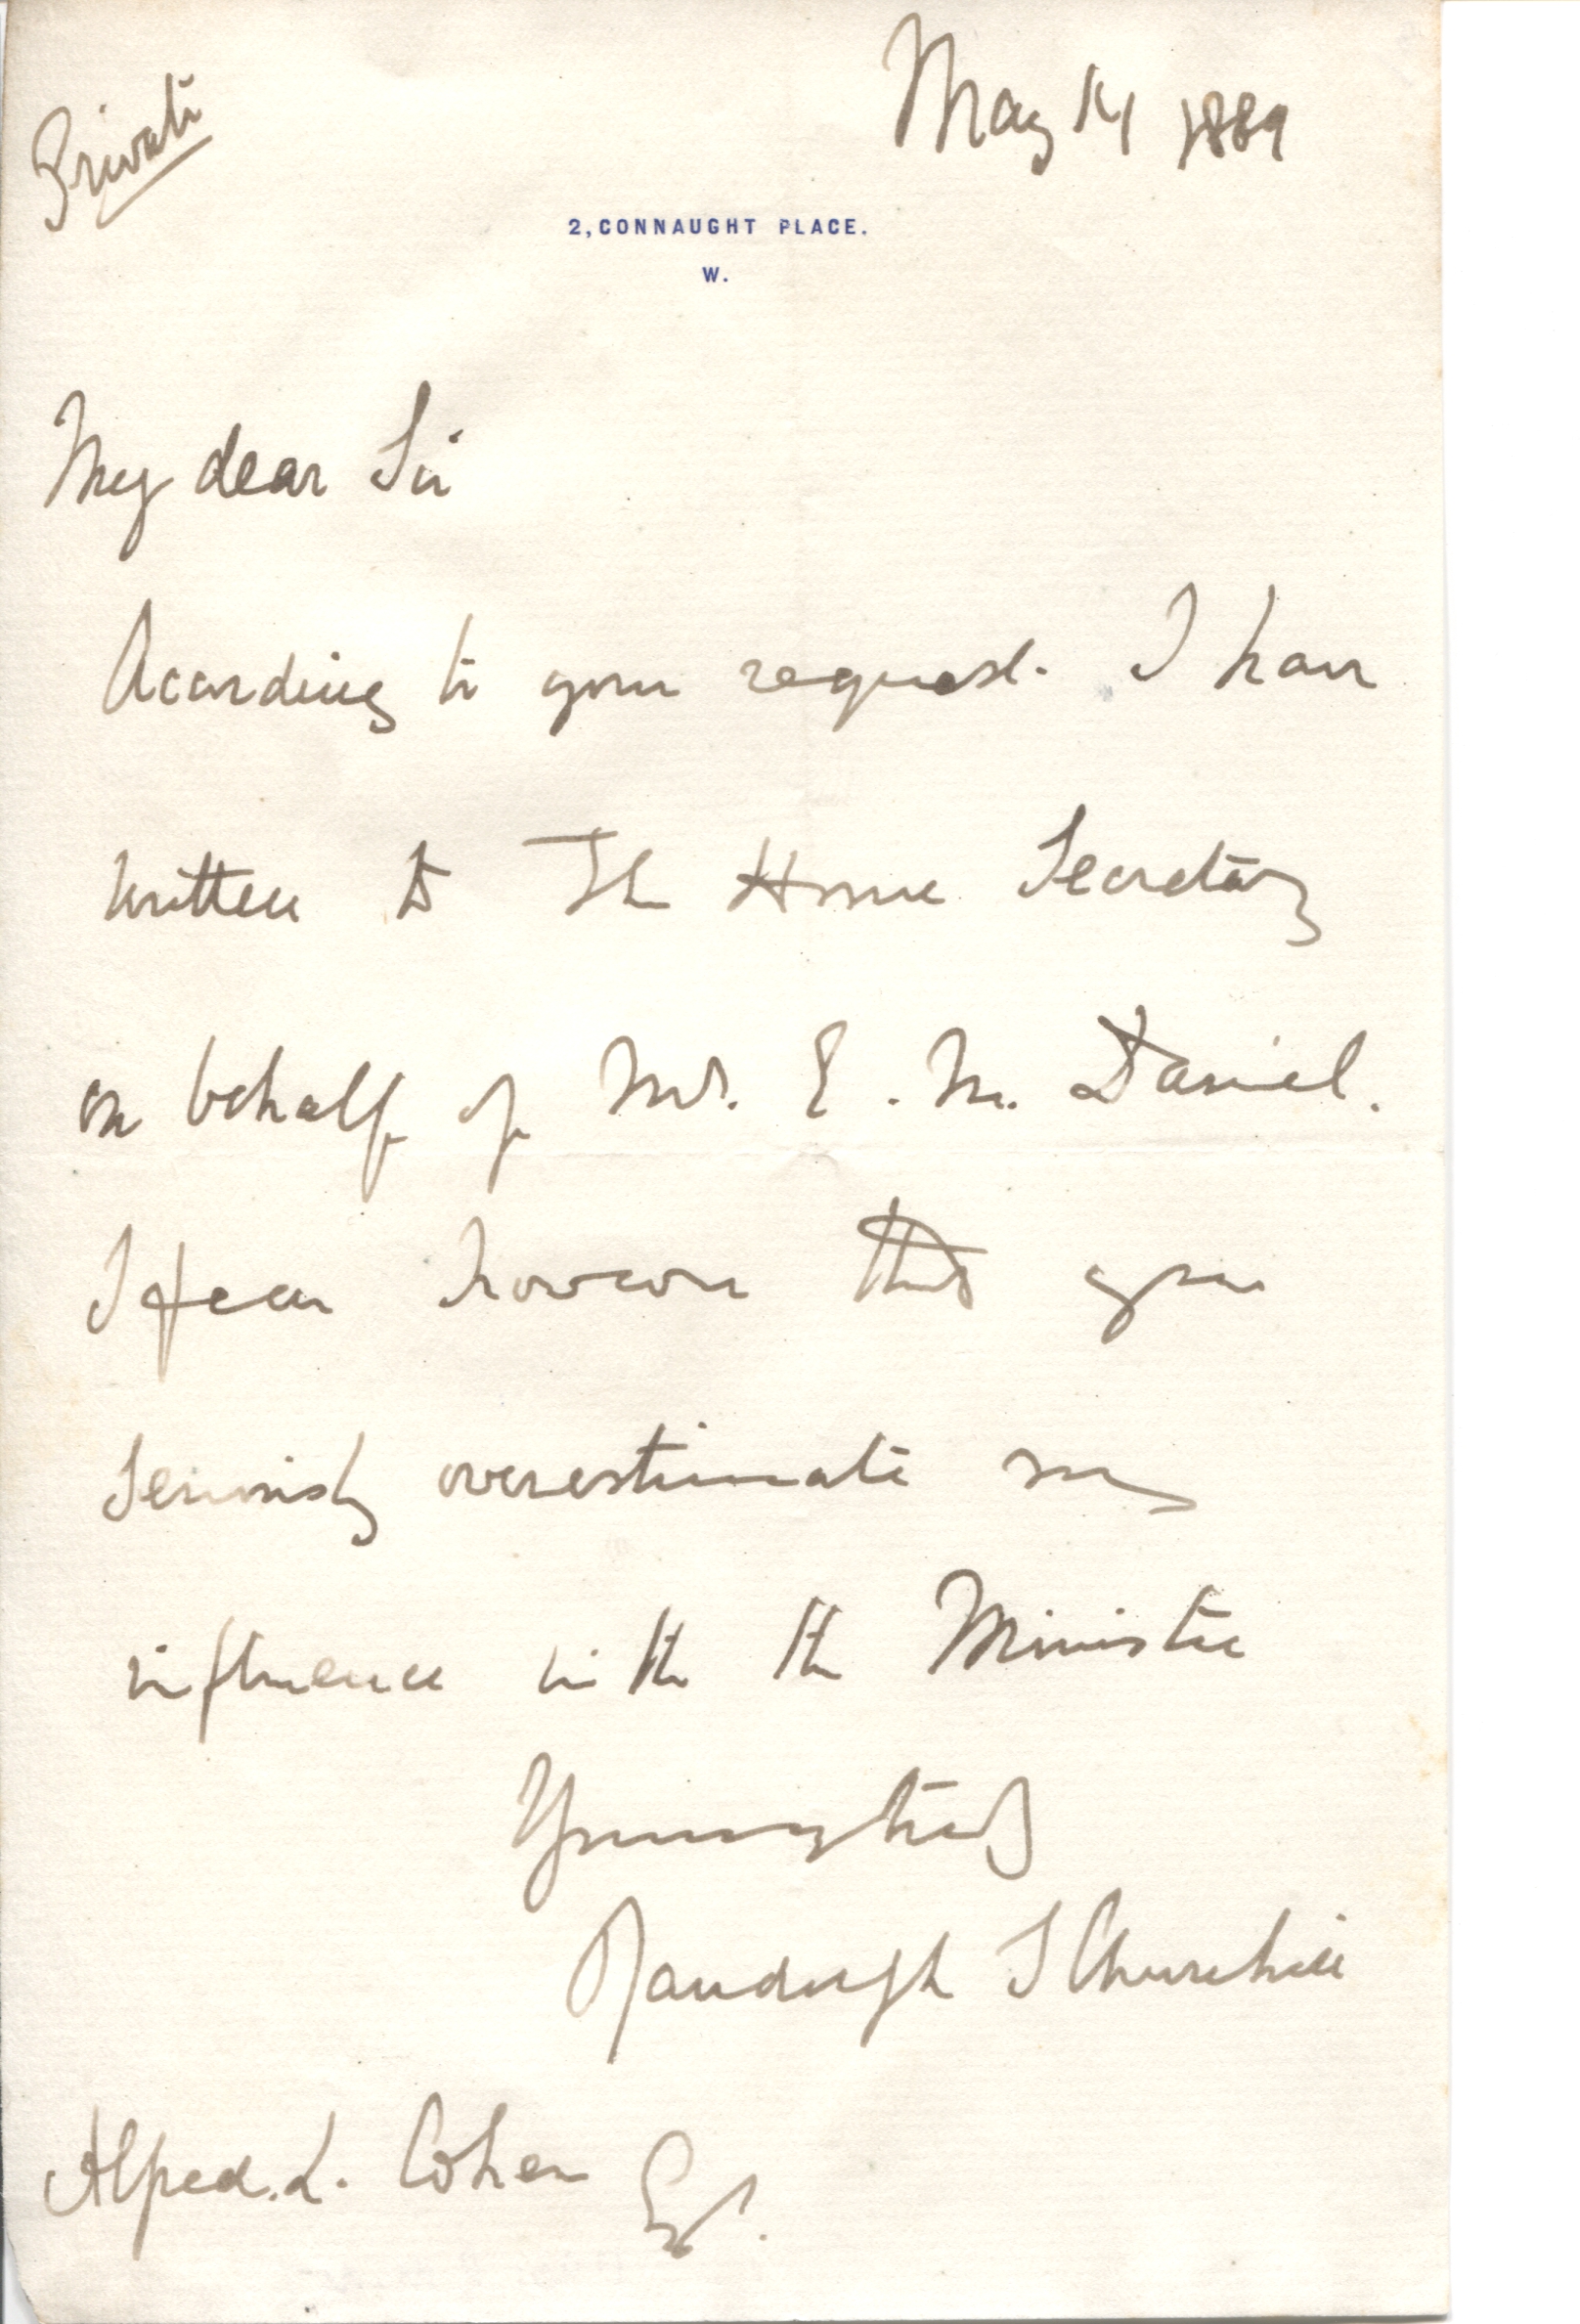 Private
May 14 1889
2, CONNAUGHT PLACE.
W.
My dear Sir
According to your request I have
written to The Home Secretary
on behalf of Mr. E. M. Daniel.
I fear however that you
seriously overestimate my
influence with the Minister
Yours truly
Randolph S Churchill
Alfred. L. Cohen Esq.